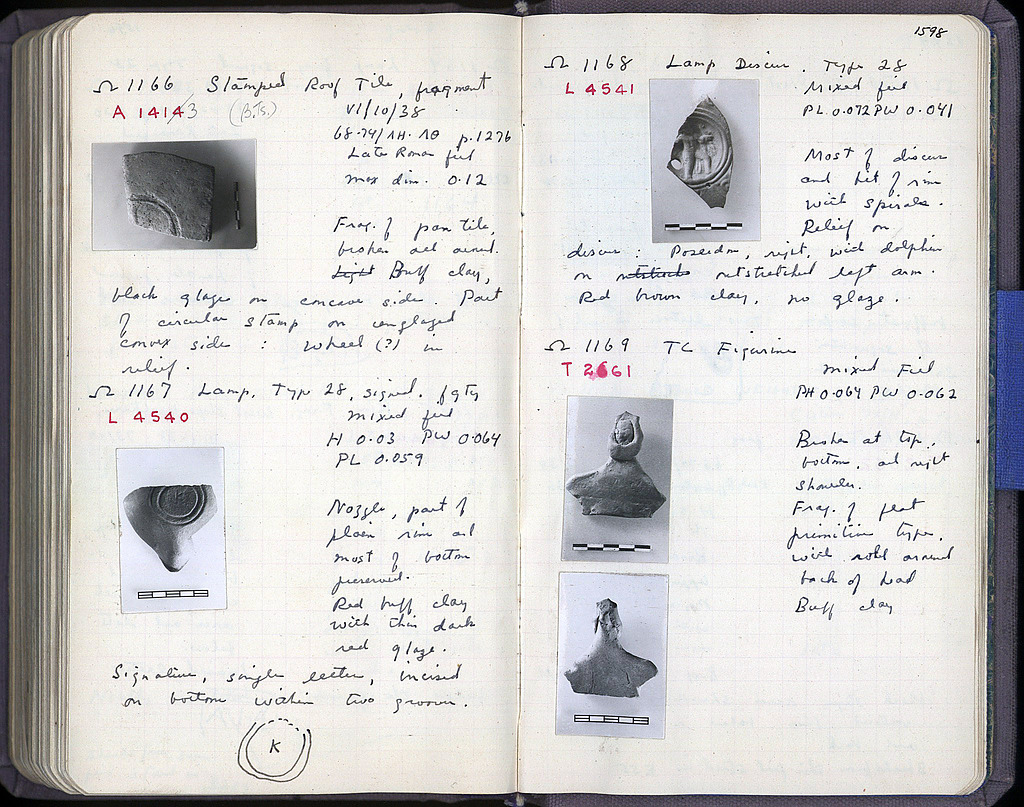 1598
Ω 1166 Stamped Roof Tile, fragment
A 14143 (B.Ts.) VI/10/38
68-74/ΛΗ-ΛΘ p. 1276
Late Roman fill
max dim. 0.12
Frag. of pan tile,
broken all around.
Light Buff clay,
black glaze on concave side. Part
of circular stamp on unglazed
convex side : wheel (?) in
relief.
Ω 1167 Lamp, Type 28, signed. fgty
L 4540 mixed fill
H 0.03 PW 0.064
PL 0.059
Nozzle, part of
plain rim and
most of bottom
preserved.
Red buff clay
with thin dark
red glaze.
Signature, single letter, incised
on bottom within two grooves.
K
Ω 1168 Lamp Discus. Type 28
L 4541 Mixed fill
PL 0.072 PW 0.041
Most of discus
and bit of rim
with spirals.
Relief on
discus : Poseidon, right, with dolphin
on outstretched left arm.
Red brown clay, no glaze.
Ω 1169 TC Figurine
T 2661 mixed Fill
PH 0.064 PW 0.062
Broken at top,
bottom, and right
shoulder.
Frag. of flat
primitive type,
with roll around
back of head
Buff clay